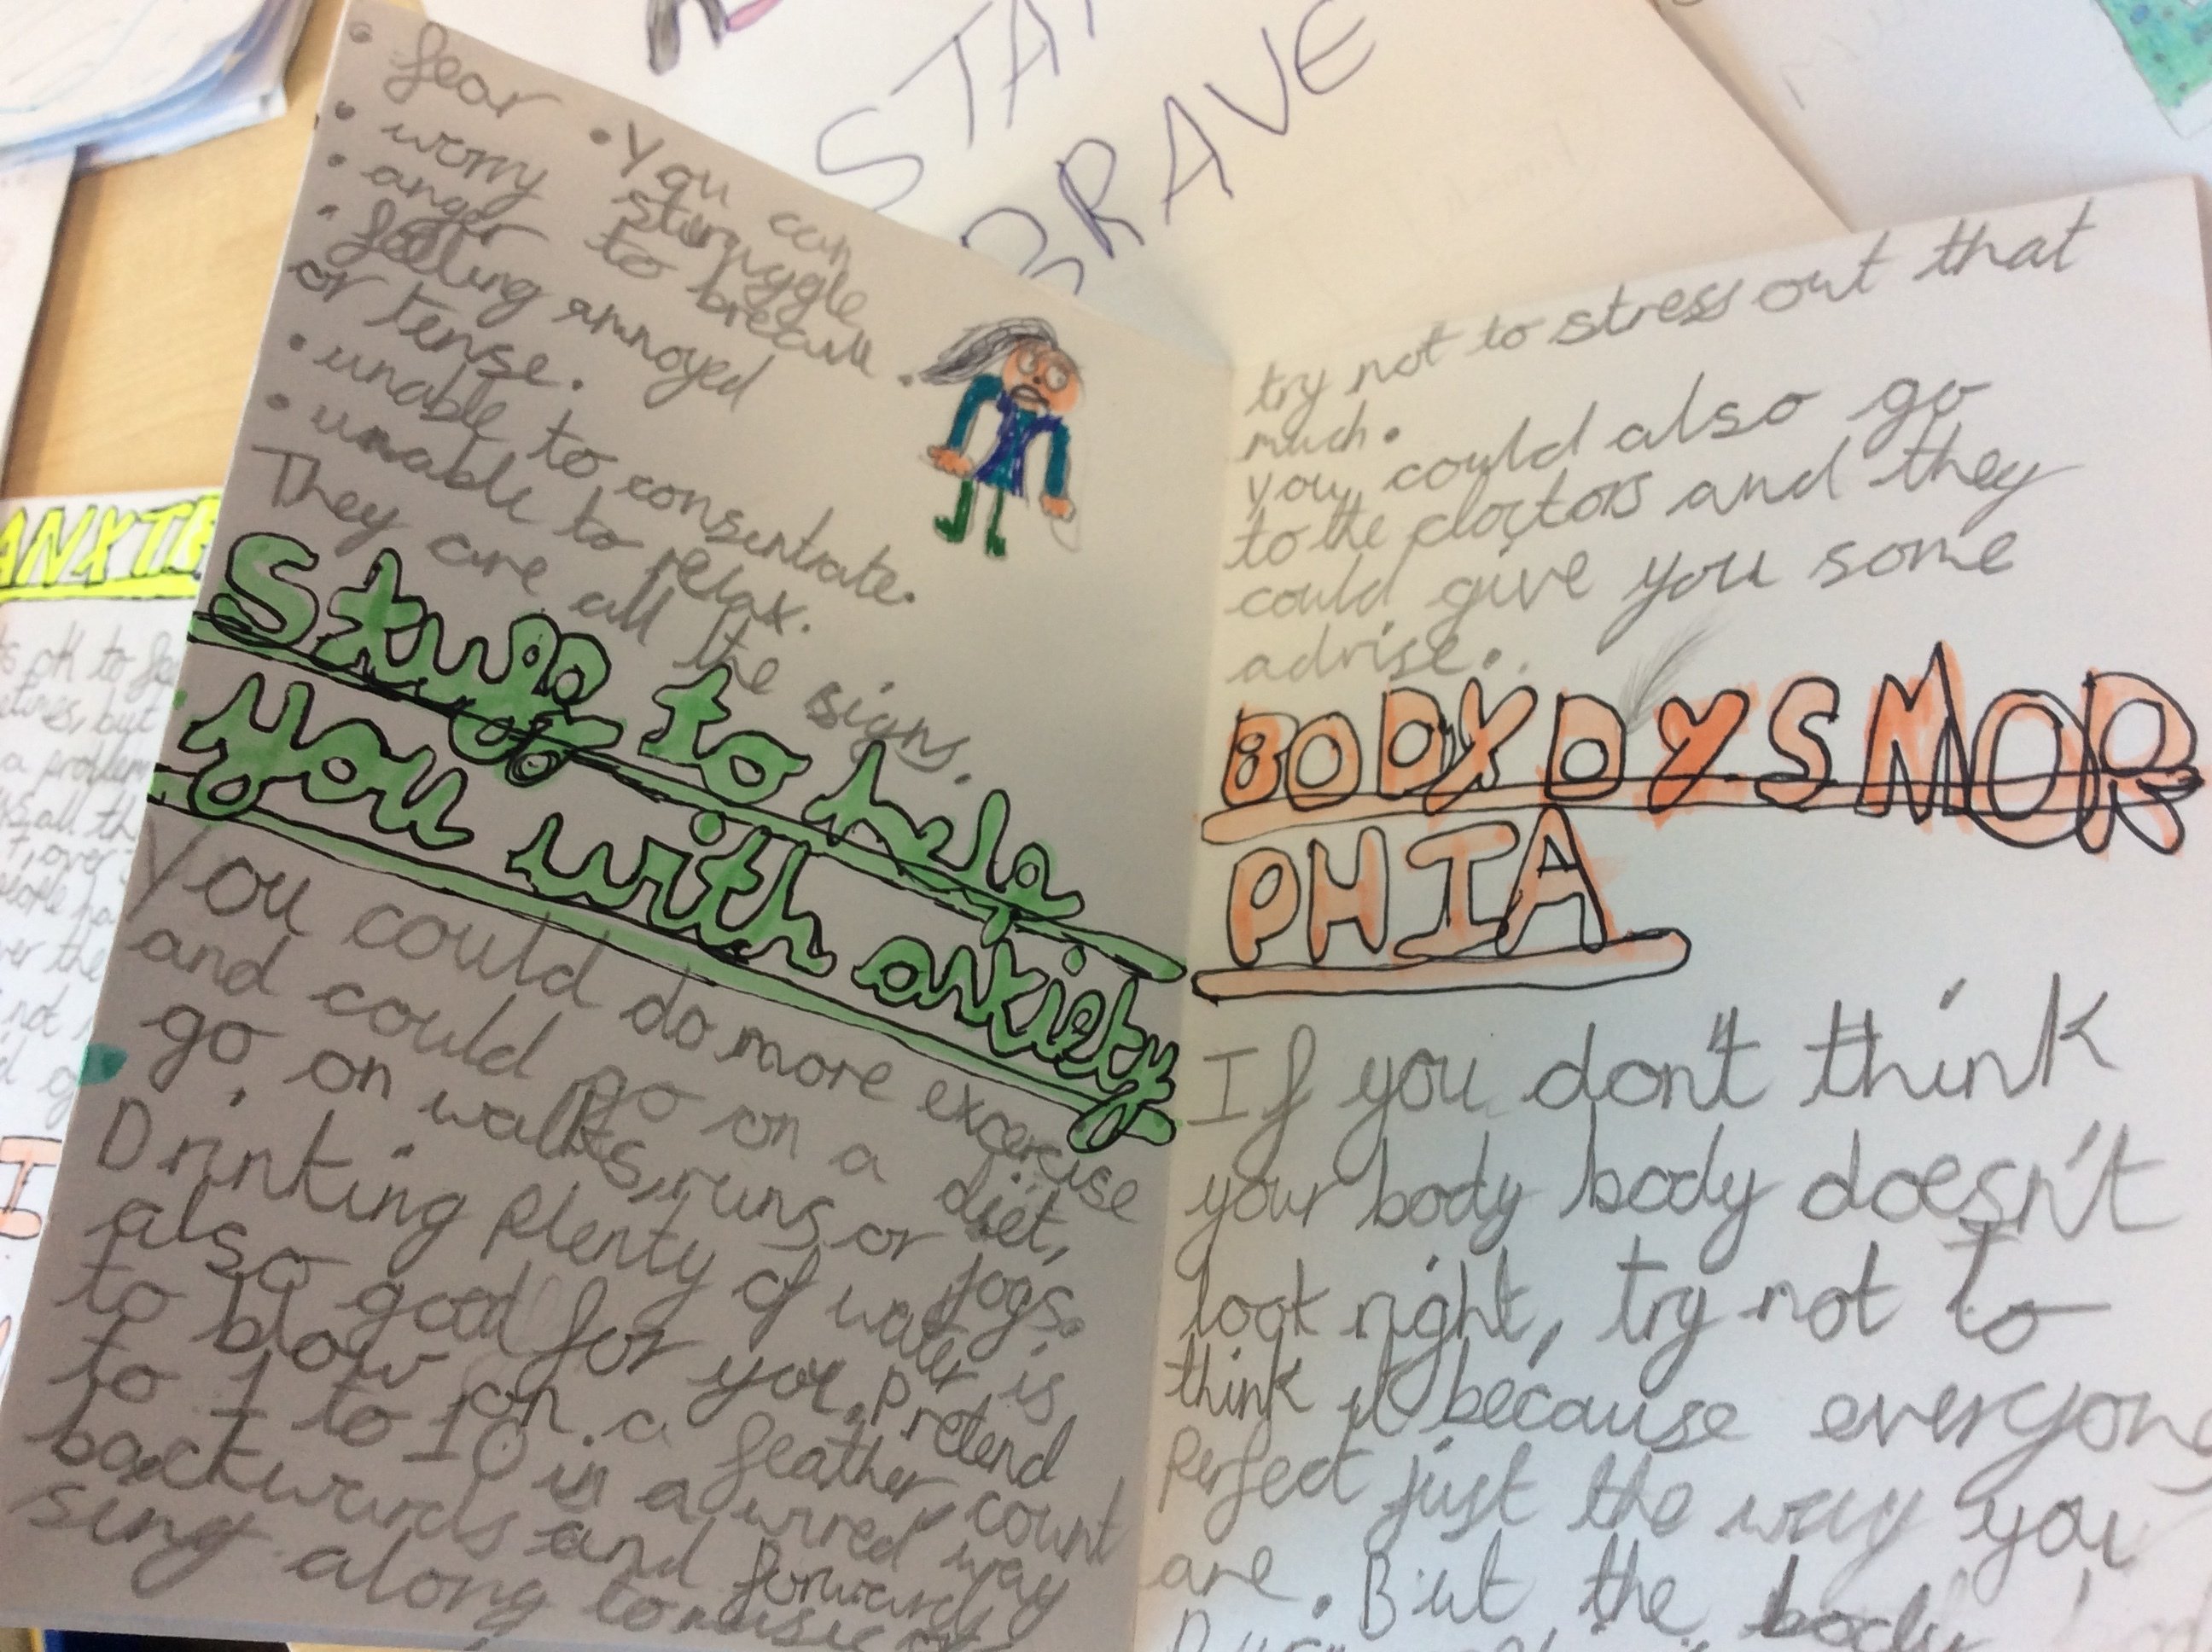 STAY
BRAVE
• fear
• worry
• anger
• feeling annoyed
or tense.
• You can
struggle
to breath.
• unable to consentrate.
• unable to relax.
They are all the signs.
Stuff to help
you with anxiety
You could do more excercise
and could go on a diet,
go on walks, runs or jogs.
Drinking plenty of water is
also good for you. Pretend
to blow on a feather, count
to 1 to 10 in a wired way
backwards and forwards
sing along to music or
try not to stress out that
much.
you could also go
to the doctors and they
could give you some
advise.
BODY DYSMOR
PHIA
If you don't think
your body body doesn't
look right, try not to
think it because everyone
perfect just the way you
are. But the body
ANXIE